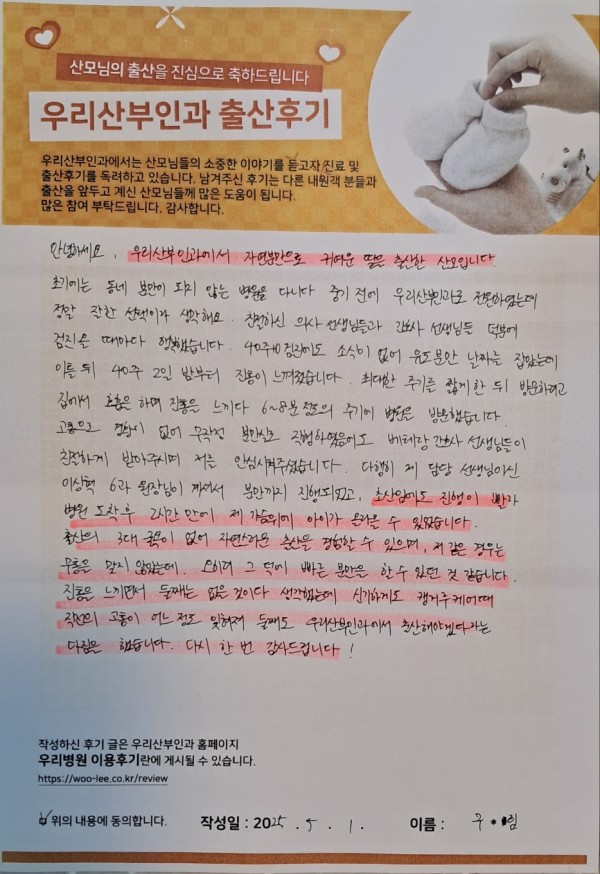 산모님의 출산을 진심으로 축하드립니다
우리산부인과 출산후기
우리산부인과에서는 산모님들의 소중한 이야기를 듣고자 진료 및
출산후기를 독려하고 있습니다. 남겨주신 후기는 다른 내원객 분들과
출산을 앞두고 계신 산모님들께 많은 도움이 됩니다.
많은 참여 부탁드립니다. 감사합니다.
안녕하세요, 우리산부인과에서 자연분만으로 귀여운 딸을 출산한 산모입니다.
초기에는 동네 분만이 되지 않는 병원을 다니다 중기 전에 우리산부인과로 전원하였는데
정말 잘한 선택이라 생각해요. 친절하신 의사 선생님들과 간호사 선생님들 덕분에
검진은 때마다 행복했습니다. 40주 검진에도 소식이 없어 유도분만 날짜를 잡았는데
이틀 뒤 40주 2일 밤부터 진통이 느껴졌습니다. 최대한 주기를 짧게 한 뒤 방문하려고
집에서 호흡을 하며 진통을 느끼다 6~8분 정도의 주기에 병원을 방문했습니다.
고통으로 정신이 없어 무작정 분만실로 직행하였음에도 베테랑 간호사 선생님들이
친절하게 받아주시며 저를 안심시켜주셨습니다. 다행히 제 담당 선생님이신
이상혁 6과 원장님이 계셔서 분만까지 진행되었고, 초산임에도 진행이 빨라
병원 도착 후 2시간 만에 제 가슴위에 아이가 올라올 수 있었습니다.
출산의 3대 굴욕이 없어 자연스러운 출산을 경험할 수 있으며, 저 같은 경우는
무통을 맞지 않았는데, 오히려 그 덕에 빠른 분만을 할 수 있던 것 같습니다.
진통을 느끼면서 둘째는 없을 것이다 생각했는데 신기하게도 캥거루케어 때
직전의 고통이 어느 정도 잊혀져 둘째도 우리산부인과에서 출산해야겠다라는
다짐을 했습니다. 다시 한 번 감사드립니다!
작성하신 후기 글은 우리산부인과 홈페이지
우리병원 이용후기란에 게시될 수 있습니다.
https://woo-lee.co.kr/review
위의 내용에 동의합니다. 작성일 : 2025. 5. 1. 이름 : 구*림